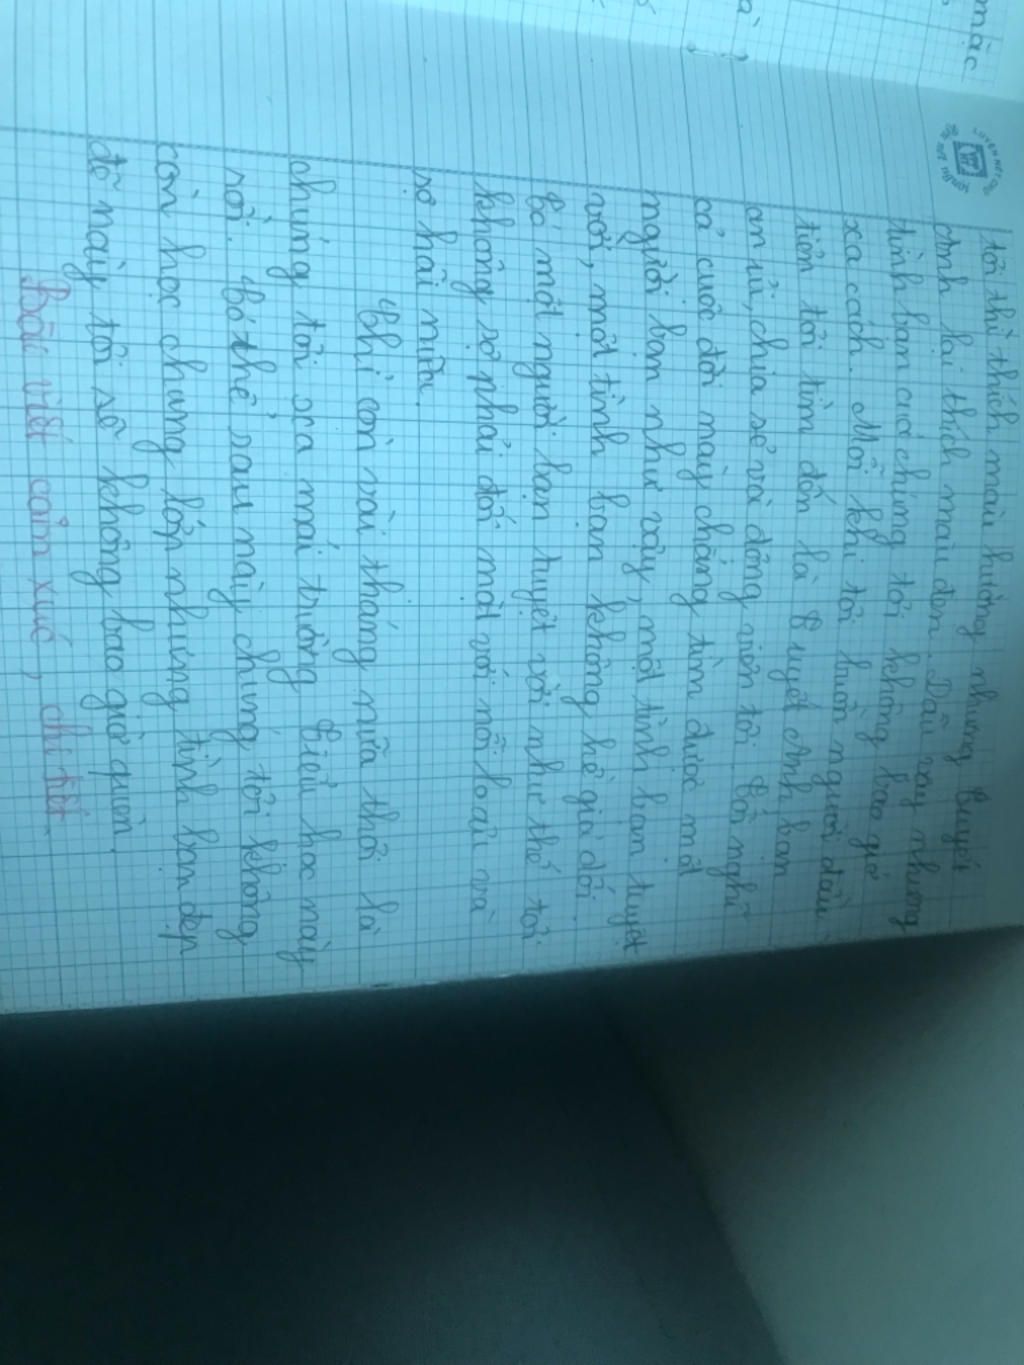 mặc
à ?
tôi thì thích màu hường nhưng Tuyết
Anh lại thích màu đen. Dẫu vậy nhưng
tình bạn của chúng tôi không bao giờ
xa cách. Mỗi khi tôi buồn người đầu
tiên tôi tìm đến là Tuyết Anh bạn
an ủi, chia sẻ và động viên tôi. Tôi nghĩ
cả cuộc đời này chẳng tìm được một
người bạn như vậy, một tình bạn tuyệt
vời, một tình bạn không hề giả dối.
Có một người bạn tuyệt vời như thế tôi
không sợ phải đối mặt với nỗi loài và
sợ hãi nữa.
Chỉ còn vài tháng nữa thôi là
chúng tôi xa mái trường Tiểu học này
rồi. Có thể sau này chúng tôi không
còn học chung lớp nhưng tình bạn đẹp
đẽ này tôi sẽ không bao giờ quên.
Bài viết cảm xúc, chi tiết.